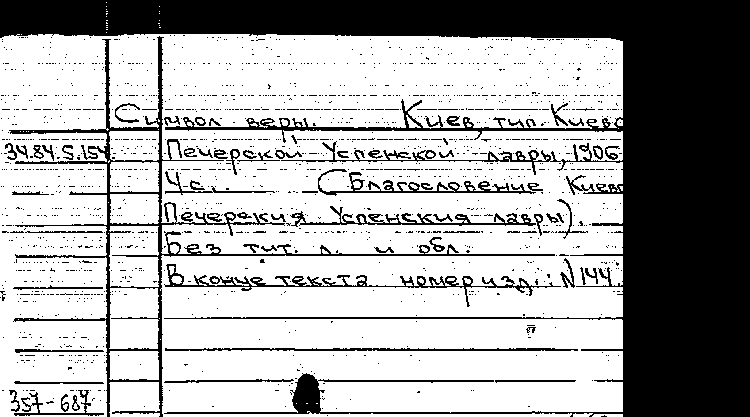 Символ веры. Киев, тип. Киево
34.84.5.154. Печерской Успенской лавры, 1906
4с. (Благословение Киево
Печерския Успенския лавры).
Без тит. л. и обл.
В конце текста номер изд.: N 144.
357-687